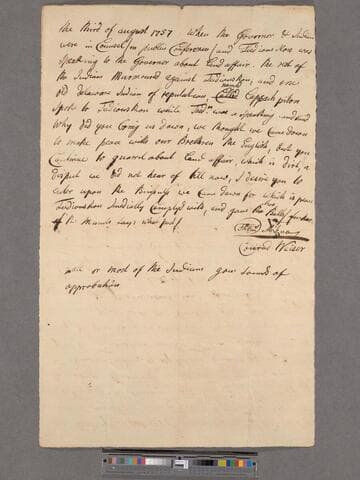 the third of august 1757 When the Governor & Indians
were in Counsel in public Conference and Tediuscion was
Speaking to the Governor about land affair. the rest of
the Indians Murmured against Tediuscion, and one
old Delaware Indian of reputation named
Spoke to Tediuscion while was a speaking and said
Why did you bring us down, we thought we came down
to make peace with our Brethren the English, but you
Continue to quarrel about land affair, which is dirt, a
disput we did not hear of till now, I desire you to
enter upon the Business we came down for which is peace
Tediuscion Complyd with, and gave the Belts
of the
Conrad Weiser
all or most of the Indians gave sounds of
approbation